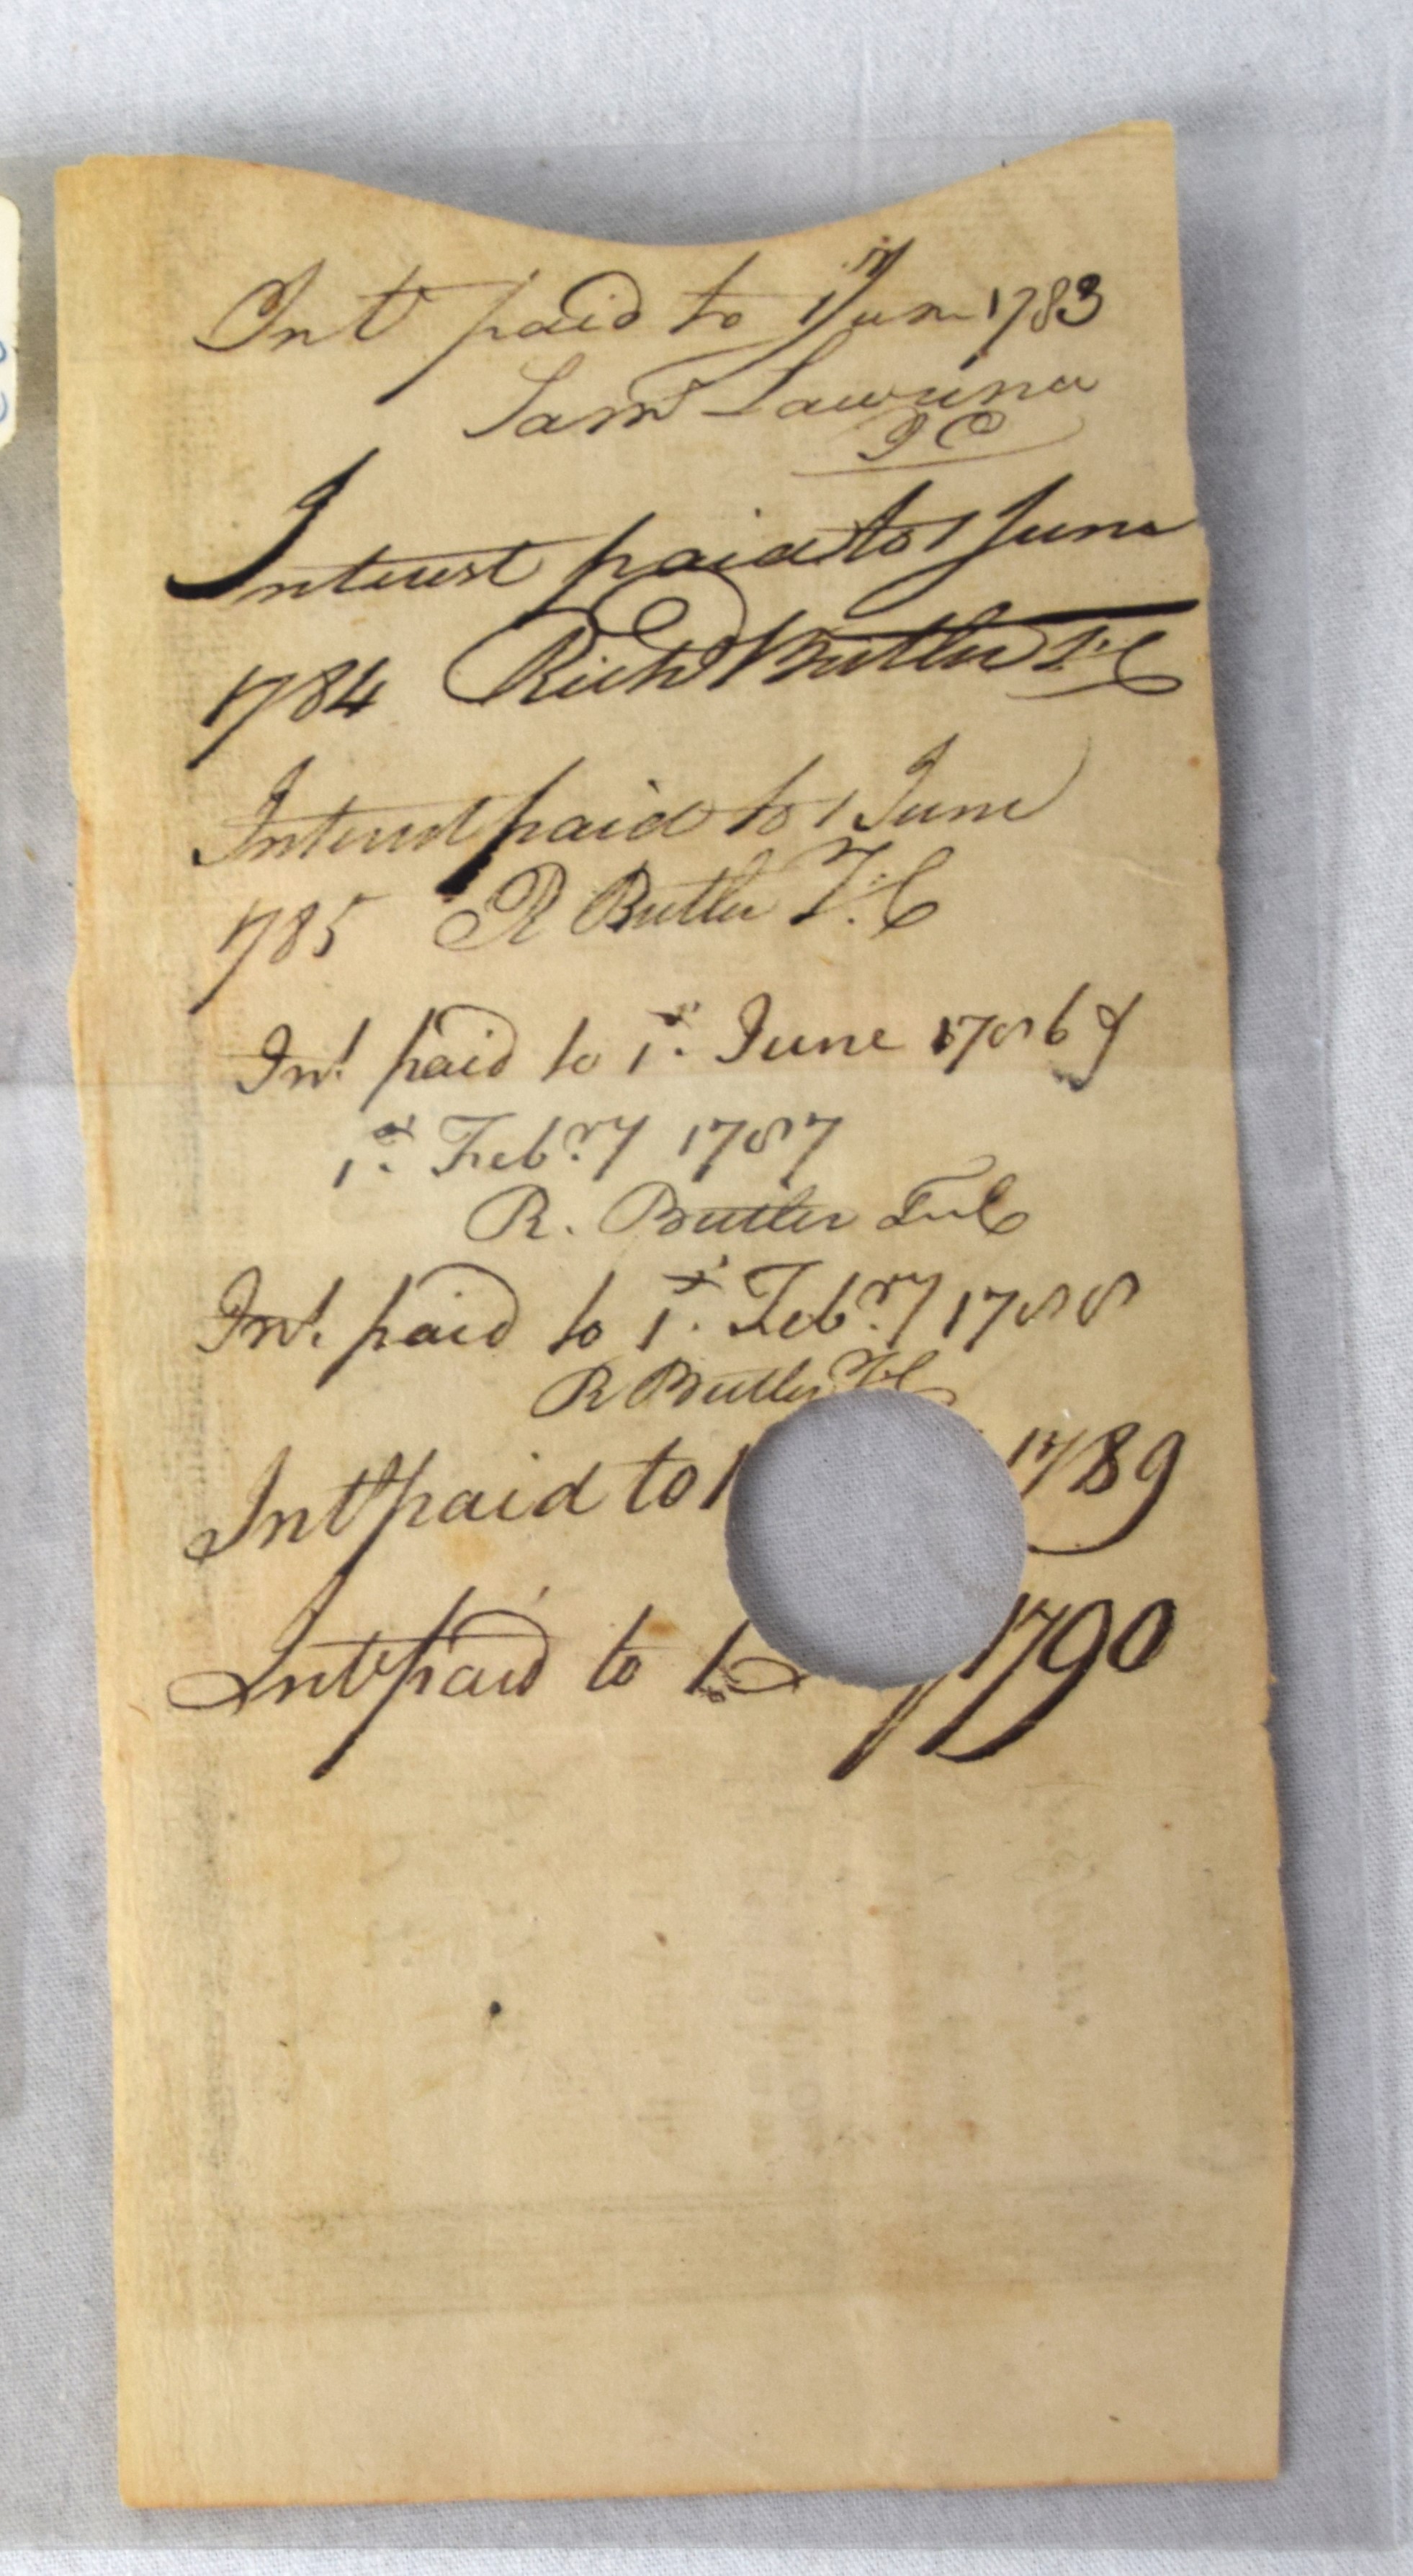 Int paid to 1 June 1783
Sam Lawrence
Interest paid to 1 June
1784 Richd Butler T:C
Interest paid to 1 June
1785 R Butler T:C
Int. paid to 1st. June 1786 &
1st. Feb.ry 1787
R. Butler
Int. paid to 1st. Feb.ry 1788
R Butler T:C
Int paid to 1 1789
Int paid to 1 1790